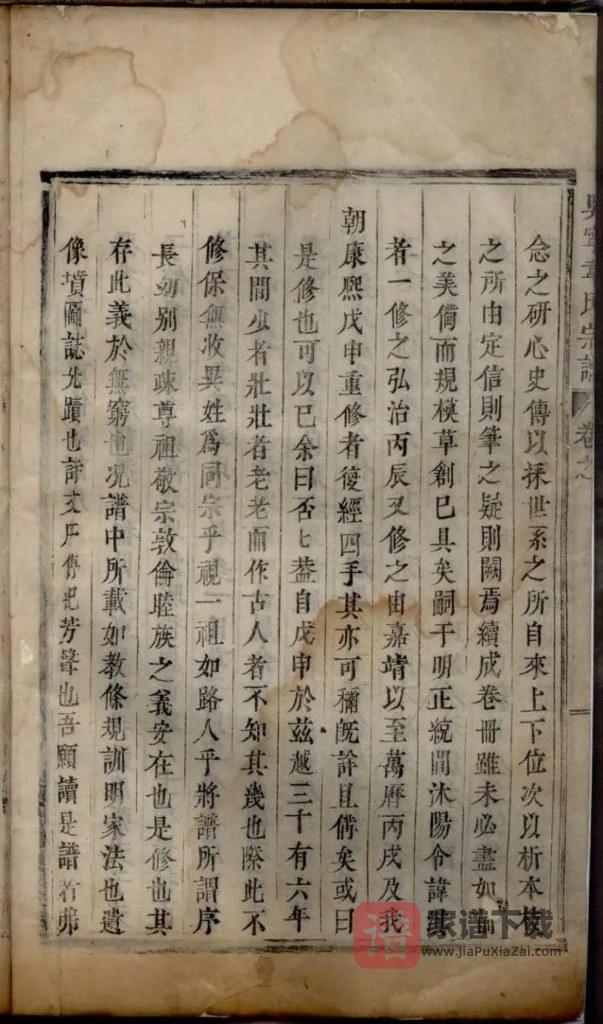 吳寧韋氏宗譜 卷之
念之研心史傳以採世系之所自來上下位次以析本枝
之所由定信則筆之疑則闕焉續成卷冊雖未必盡如
之美備而規模草創已具矣嗣于明正統間沐陽令諱
者一修之弘治丙辰又修之由嘉靖以至萬曆丙戌及我
朝康熙戊申重修者復經四手其亦可稱旣詳且備矣或曰
是修也可以已余曰否否葢自戊申於茲越三十有六年
其間少者壯壯者老老而作古人者不知其幾也際此不
修保無收異姓爲同宗乎視一祖如路人乎將譜所謂序
長幼別親疎尊祖敬宗敦倫睦族之義安在也是修也其
存此義於無窮也况譜中所載如教條規訓明家法也遺
像墳圖誌先蹟也詩文序傳記芳聲也吾願讀是譜者弗
譜 家谱下载
www.JiaPuXiaZai.com